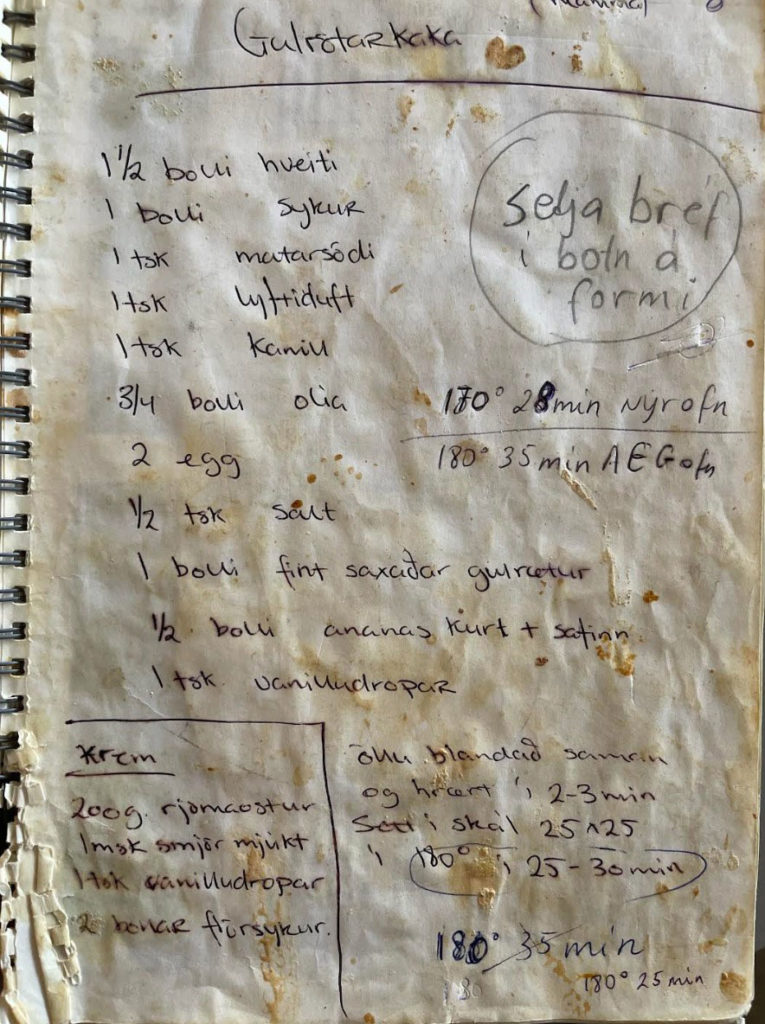 Gulrótarkaka
1 1/2 bolli hveiti
1 bolli sykur
1 tsk matarsódi
1 tsk lyftiduft
1 tsk kanill
3/4 bolli olia
2 egg
1/2 tsk salt
1 bolli fint saxaðar gulrætur
1/2 bolli ananas kurl + safinn
1 tsk vanilludropar
Setja bréf
í botn á
formi
28 min Nýr ofn
180° 35 min AEG ofn
Krem
200g. rjómaostur
1 msk smjör mjúkt
1 tsk vanilludropar
2 bollar flórsykur.
öllu blandað saman
og hrært í 2-3 min
Sett í skál 25x25
í 180° í 25-30 min
35 min
180° 25 min